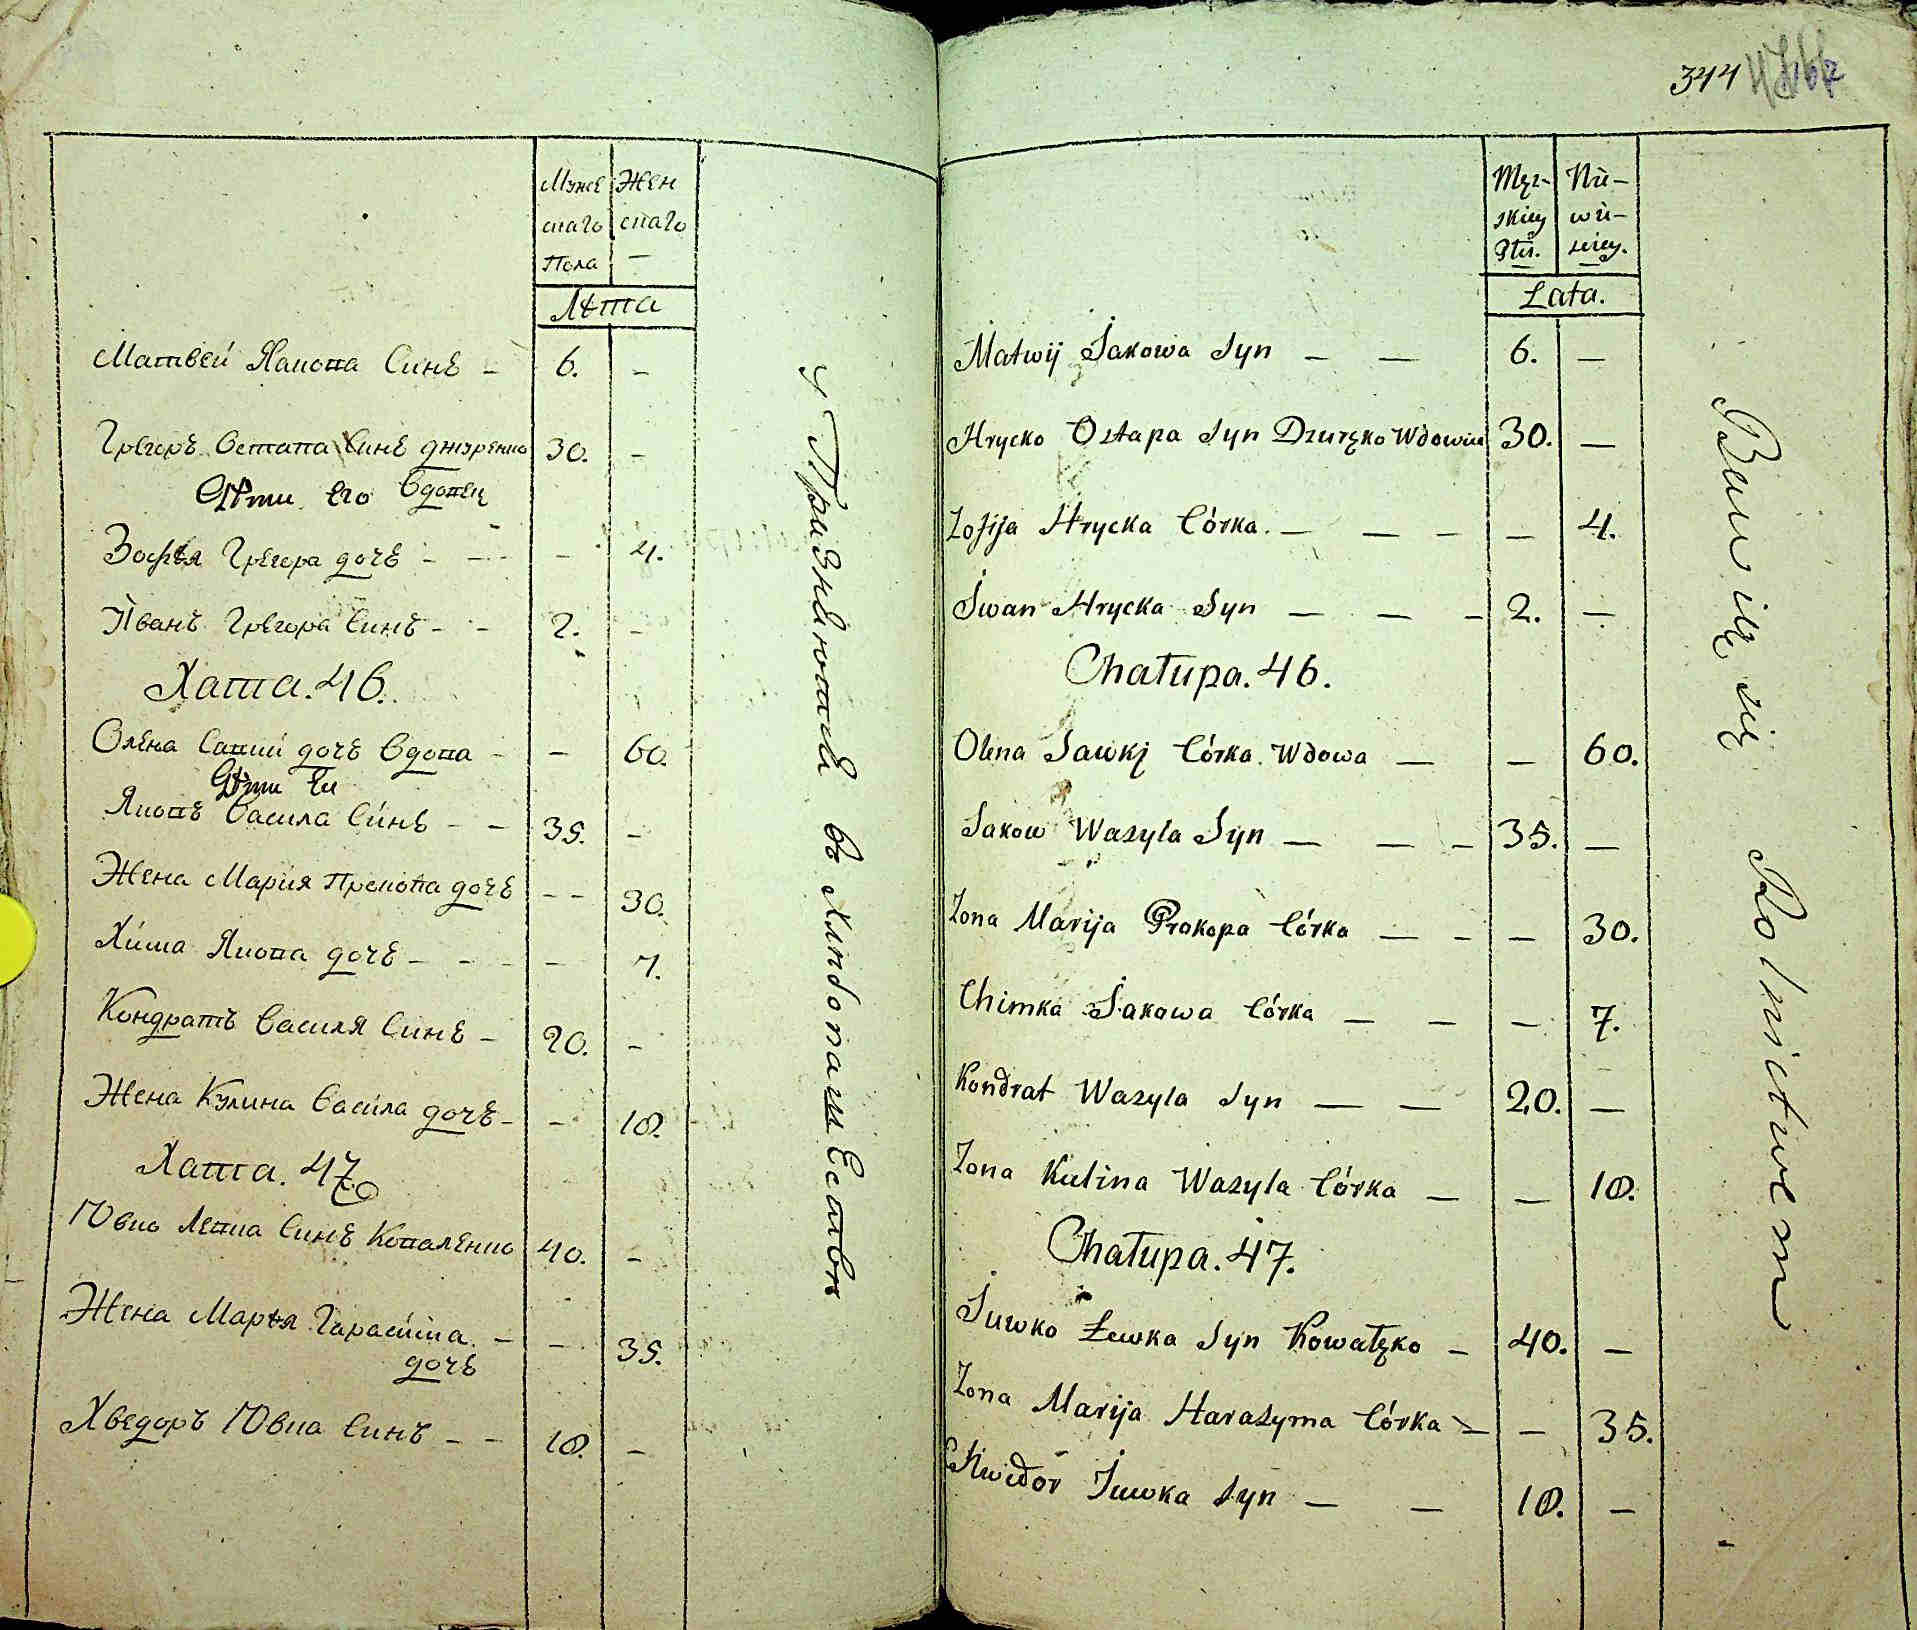 Муже Жен
скаго скаго
Пола —
Лѣта
Матвей Якова Синъ - 6. -
Грегоръ Остапа Синъ Джуренко 30. -
Дѣти его вдовец
Зофѣя Грегора дочъ - - - 4.
Иванъ Грегора Синъ - - 2. -
Хата. 46.
Олена Савки дочъ вдова - - 60.
Дѣти Еи
Яковъ Васила Синъ - - 35. -
Жена Мария Прокопа дочъ - - 30.
Хима Якова дочъ - - - - 7.
Кондратъ Василя Синъ - 20. -
Жена Кулина Васила дочъ - - 18.
Хата. 47.
Ювко Левка Синъ Коваленко 40. -
Жена Марѣя Гарасима - - 35.
дочъ
Хведоръ Ювка Синъ - - 18. -
344
Męz- Nie-
skiey wie-
Płci. sciey.
Lata.
Matwij Jakowa Syn — — 6. —
Hrycko Ostapa Syn Dzuręko Wdowiec 30. —
Zofija Hrycka Córka. — — - — 4.
Jwan Hrycka Syn — — - 2. —
Chałupa. 46.
Olena Sawkj Córka Wdowa — — 60.
Jakow Wasyla Syn — — - 35. —
Zona Marija Prokopa Córka — - — 30.
Chimka Jakowa Córka — — — 7.
Kondrat Wasyla Syn — — 20. —
Zona Kulina Wasyla Córka — — 18.
Chałupa. 47.
Juwko Łewka Syn Kowalęko — 40. —
Zona Marija Harasyma Córka — — 35.
Chwedor Juwka Syn — — 18. —
Bawi się Rolnictwem